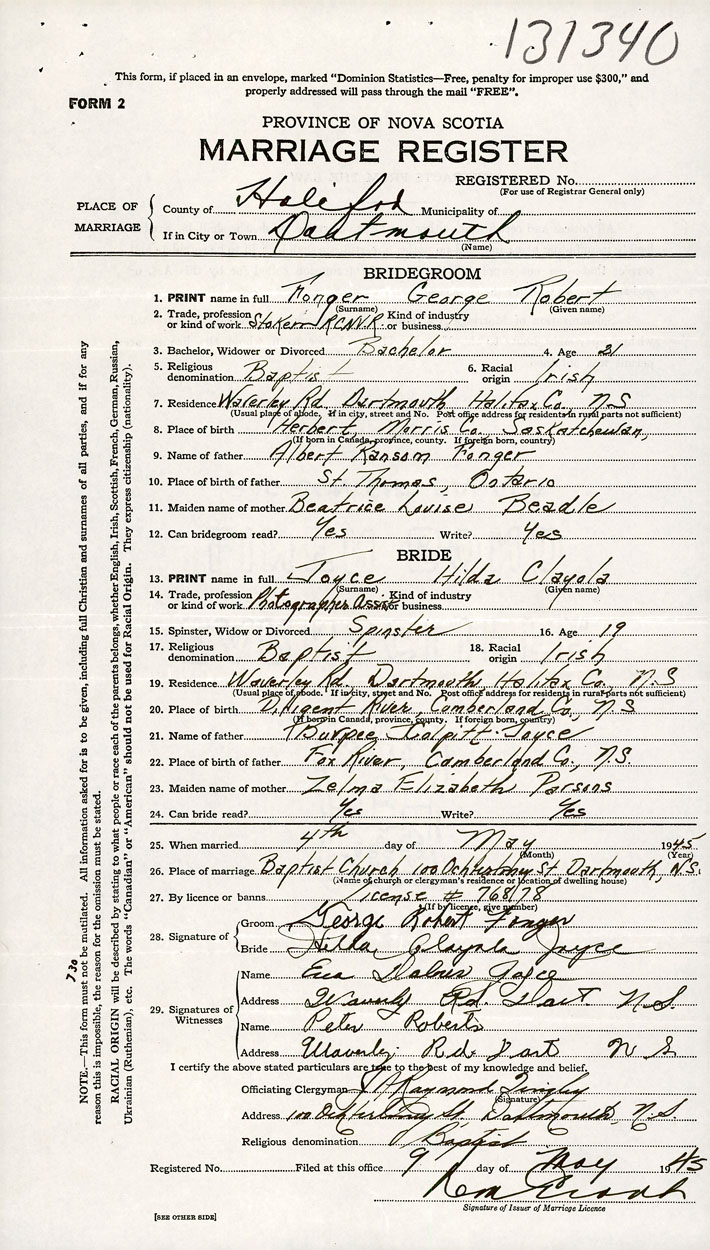 131340
This form, if placed in an envelope, marked “Dominion Statistics—Free, penalty for improper use $300,” and
properly addressed will pass through the mail “FREE”.
FORM 2
PROVINCE OF NOVA SCOTIA
MARRIAGE REGISTER
REGISTERED No.
(For use of Registrar General only)
PLACE OF MARRIAGE
County of Halifax Municipality of
If in City or Town Dartmouth
(Name)
BRIDEGROOM
1. PRINT name in full Fonger George Robert
(Surname) (Given name)
2. Trade, profession or kind of work Stoker R.C.N.V.R. Kind of industry or business
3. Bachelor, Widower or Divorced Bachelor 4. Age 21
5. Religious denomination Baptist 6. Racial origin Irish
7. Residence Waverley Rd. Dartmouth Halifax Co. N.S
(Usual place of abode. If in city, street and No. Post office address for residents in rural parts not sufficient)
8. Place of birth Herbert, Morris Co. Saskatchewan,
(If born in Canada, province, county. If foreign born, country)
9. Name of father Albert Ransom Fonger
10. Place of birth of father St. Thomas, Ontario
11. Maiden name of mother Beatrice Louise Beadle
12. Can bridegroom read? Yes Write? Yes
BRIDE
13. PRINT name in full Joyce Hilda Clayola
(Surname) (Given name)
14. Trade, profession or kind of work Photographer Asst. Kind of industry or business
15. Spinster, Widow or Divorced Spinster 16. Age 19
17. Religious denomination Baptist 18. Racial origin Irish
19. Residence Waverley Rd. Dartmouth, Halifax Co. N.S
(Usual place of abode. If in city, street and No. Post office address for residents in rural parts not sufficient)
20. Place of birth Diligent River, Cumberland Co., N.S
(If born in Canada, province, county. If foreign born, country)
21. Name of father Burpee Joyce
22. Place of birth of father Fox River, Cumberland Co., N.S.
23. Maiden name of mother Zelma Elizabeth Parsons
24. Can bride read? Yes Write? Yes
25. When married 4th day of May 1945
(Month) (Year)
26. Place of marriage Baptist Church 100 Ochterloney St Dartmouth, N.S.
(Name of church or clergyman's residence or location of dwelling house)
27. By licence or banns license # 768178
(If by licence, give number)
28. Signature of
Groom George Robert Fonger
Bride Hilda Clayola Joyce
29. Signatures of Witnesses
Name Joyce
Address Waverly Rd. Dart N.S.
Name Peter Roberts
Address Waverley Rd. Dart N S
I certify the above stated particulars are true to the best of my knowledge and belief.
Officiating Clergyman Raymond Tingley
(Signature)
Address 100 Ochterloney St. Dartmouth, N.S.
Religious denomination Baptist
Registered No. Filed at this office 9 day of May 1945
Signature of Issuer of Marriage Licence
[SEE OTHER SIDE]
730
NOTE.—This form must not be mutilated. All information asked for is to be given, including full Christian and surnames of all parties, and if for any
reason this is impossible, the reason for the omission must be stated.
RACIAL ORIGIN will be described by stating to what people or race each of the parents belongs, whether English, Irish, Scottish, French, German, Russian,
Ukrainian (Ruthenian), etc. The words “Canadian” or “American” should not be used for Racial Origin. They express citizenship (nationality).